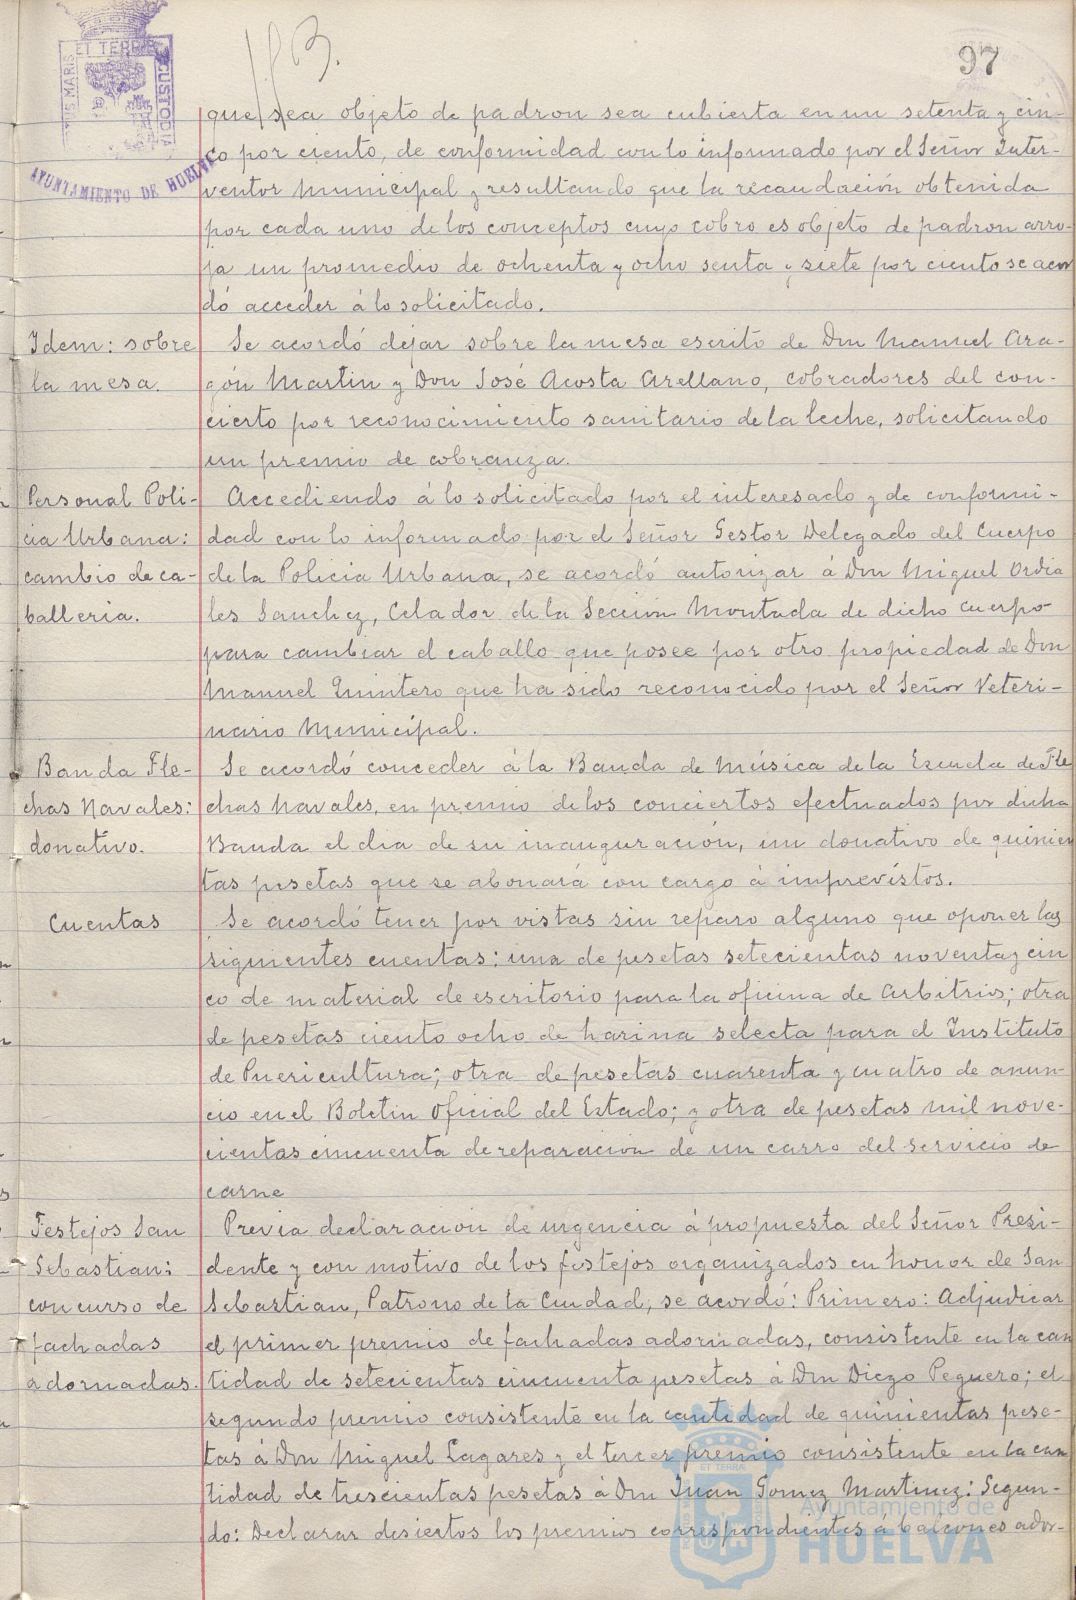 97
ET TERRÆ CUSTODIA
AYUNTAMIENTO DE HUELVA
que sea objeto de padron sea cubierta en un setenta y cin-
co por ciento, de conformidad con lo informado por el Señor Inter-
ventor Municipal y resultando que la recaudación obtenida
por cada uno de los conceptos cuyo cobro es objeto de padron arro-
ja un promedio de ochenta y ocho senta y siete por ciento se acor
dó acceder á lo solicitado.
Idem: sobre
la mesa.
Se acordó dejar sobre la mesa escrito de Don Manuel Ara-
gón Martin y Don José Acosta Arellano, cobradores del con-
cierto por reconocimiento sanitario de la leche, solicitando
un premio de cobranza.
Personal Poli-
cia Urbana:
cambio de ca-
balleria.
Accediendo á lo solicitado por el interesado y de conformi-
dad con lo informado por el Señor Gestor Delegado del Cuerpo
de la Policia Urbana, se acordó autorizar á Don Miguel Ordia
les Sanchez, Celador de la Seccion Montada de dicho Cuerpo
para cambiar el caballo que posee por otro propiedad de Don
Manuel Quintero que ha sido reconocido por el Señor Veteri-
nario Municipal.
Banda Fle-
chas Navales:
donativo.
Se acordó conceder á la Banda de Música de la Escuela de Fle
chas Navales, en premio de los conciertos efectuados por dicha
Banda el dia de su inauguración, un donativo de quinien
tas pesetas que se abonará con cargo á imprevistos.
Cuentas
Se acordó tener por vistas sin reparo alguno que oponer las
siguientes cuentas: una de pesetas setecientas noventa y cin
co de material de escritorio para la oficina de Arbitrios; otra
de pesetas ciento ocho de harina selecta para el Instituto
de Puericultura; otra de pesetas cuarenta y cuatro de anun-
cio en el Boletin Oficial del Estado; y otra de pesetas mil nove-
cientas cincuenta de reparacion de un carro del servicio de
carne
Festejos San
Sebastian:
concurso de
fachadas
adornadas.
Previa declaracion de urgencia á propuesta del Señor Presi-
dente y con motivo de los festejos organizados en honor de San
Sebastian, Patrono de la Ciudad, se acordó: Primero: Adjudicar
el primer premio de fachadas adornadas, consistente en la can
tidad de setecientas cincuenta pesetas á Don Diego Peguero; el
segundo premio consistente en la cantidad de quinientas pese-
tas á Don Miguel Lagares y el tercer premio consistente en la can
tidad de trescientas pesetas á Don Juan Gomez Martinez: Segun-
do: Declarar desiertos los premios correspondientes á balcones ador-
Ayuntamiento de
HUELVA